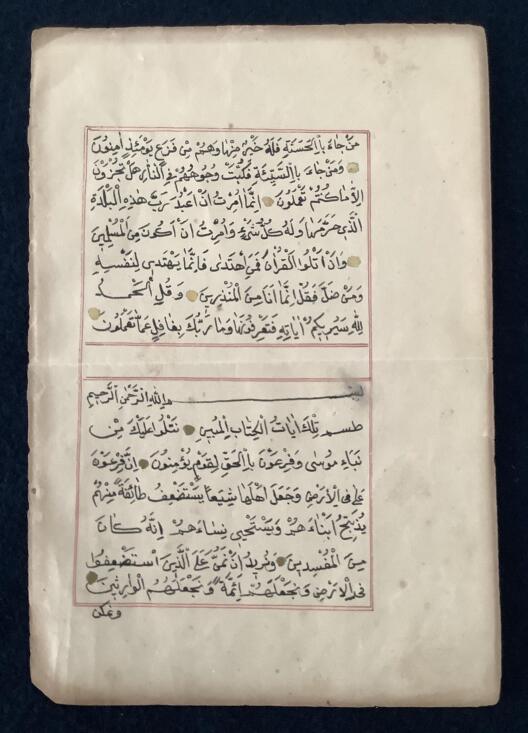 مَنْ جَاءَ بِالْحَسَنَةِ فَلَهُ خَيْرٌ مِنْهَا وَهُمْ مِنْ فَزَعٍ يَوْمَئِذٍ اٰمِنُونَ
وَمَنْ جَاءَ بِالسَّيِّئَةِ فَكُبَّتْ وُجُوهُهُمْ فِي النَّارِ هَلْ تُجْزَوْنَ
اِلَّا مَا كُنْتُمْ تَعْمَلُونَ اِنَّمَا اُمِرْتُ اَنْ اَعْبُدَ رَبَّ هٰذِهِ الْبَلْدَةِ
الَّذِي حَرَّمَهَا وَلَهُ كُلُّ شَيْءٍ وَاُمِرْتُ اَنْ اَكُونَ مِنَ الْمُسْلِمِينَ
وَاَنْ اَتْلُوَا الْقُرْاٰنَ فَمَنِ اهْتَدٰى فَاِنَّمَا يَهْتَدِي لِنَفْسِهِ
وَمَنْ ضَلَّ فَقُلْ اِنَّمَا اَنَا مِنَ الْمُنْذِرِينَ وَقُلِ الْحَمْدُ
لِلّٰهِ سَيُرِيكُمْ اٰيَاتِهِ فَتَعْرِفُونَهَا وَمَا رَبُّكَ بِغَافِلٍ عَمَّا تَعْمَلُونَ
بِسْمِ اللهِ الرَّحْمٰنِ الرَّحِيمِ
طسم تِلْكَ اٰيَاتُ الْكِتَابِ الْمُبِينِ نَتْلُوا عَلَيْكَ مِنْ
نَبَاءِ مُوسٰى وَفِرْعَوْنَ بِالْحَقِّ لِقَوْمٍ يُؤْمِنُونَ اِنَّ فِرْعَوْنَ
عَلَا فِي الْاَرْضِ وَجَعَلَ اَهْلَهَا شِيَعًا يَسْتَضْعِفُ طَائِفَةً مِنْهُمْ
يُذَبِّحُ اَبْنَاءَهُمْ وَيَسْتَحْيِي نِسَاءَهُمْ اِنَّهُ كَانَ
مِنَ الْمُفْسِدِينَ وَنُرِيدُ اَنْ نَمُنَّ عَلَى الَّذِينَ اسْتُضْعِفُوا
فِي الْاَرْضِ وَنَجْعَلَهُمْ اَئِمَّةً وَنَجْعَلَهُمُ الْوَارِثِينَ
ونمكن